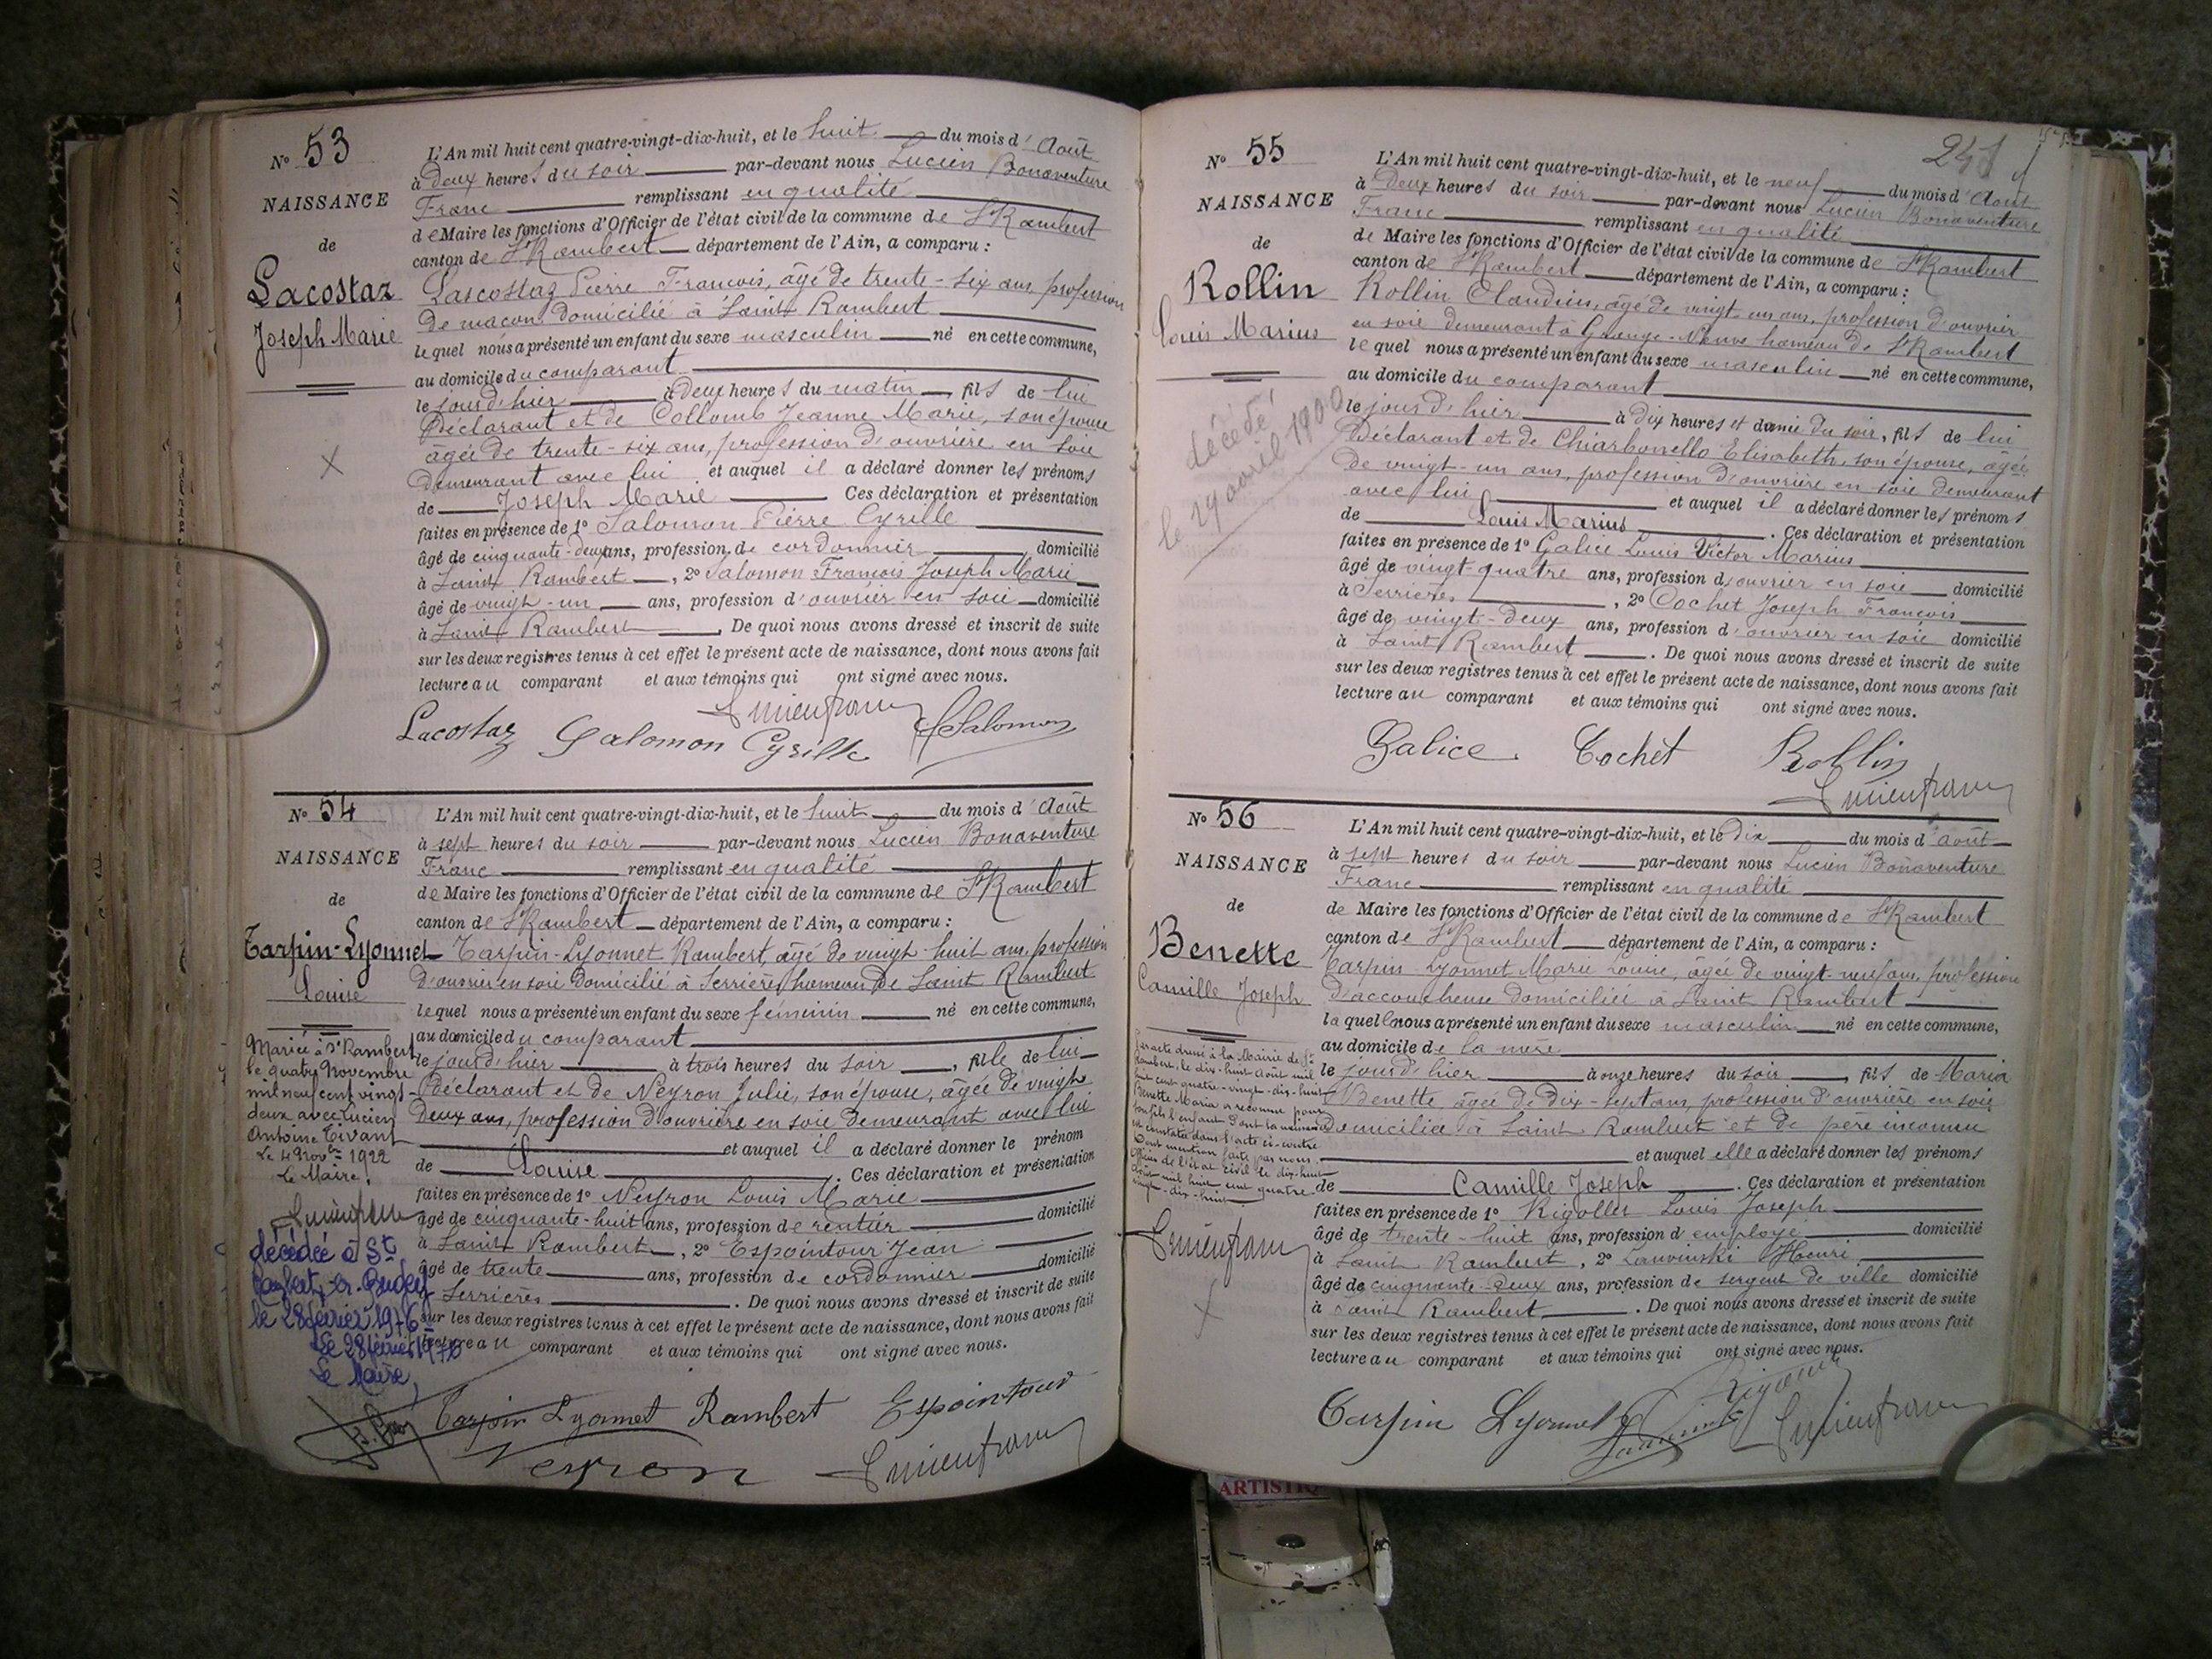 N° 53
NAISSANCE
de
Lacostaz
Joseph Marie
L'An mil huit cent quatre-vingt-dix-huit, et le huit du mois d'Août
à deux heures du soir par-devant nous Lucien Bonaventure
Franc remplissant en qualité
de Maire les fonctions d'Officier de l'état civil de la commune de St Rambert
canton de St Rambert département de l'Ain, a comparu :
Lascostaz Pierre François, âgé de trente-six ans, profession
de maçon domicilié à Saint Rambert
lequel nous a présenté un enfant du sexe masculin né en cette commune,
au domicile du comparant
le jour d'hier à deux heures du matin, fils de lui
Déclarant et de Collomb Jeanne Marie, son épouse
âgée de trente-six ans, profession d'ouvrière en soie
demeurant avec lui et auquel il a déclaré donner les prénoms
de Joseph Marie Ces déclaration et présentation
faites en présence de 1° Salomon Pierre Cyrille
âgé de cinquante-deux ans, profession de cordonnier domicilié
à Saint Rambert, 2° Salomon François Joseph Marie
âgé de vingt-un ans, profession d'ouvrier en soie domicilié
à Saint Rambert. De quoi nous avons dressé et inscrit de suite
sur les deux registres tenus à cet effet le présent acte de naissance, dont nous avons fait
lecture au comparant et aux témoins qui ont signé avec nous.
Lucien franc
Lacostaz Salomon Cyrille Salomon
N° 54
NAISSANCE
de
Tarpin-Lyonnet
Louise
Mariée à St Rambert
le quatre Novembre
mil neuf cent vingt-
deux avec Lucien
Antoine Tivant
Le 4 Novbre 1922
Le Maire,
Lucien franc
décédée à St
Rambert-en-Bugey
le 28 février 1976
Le 28 février 1976
Le Maire,
L'An mil huit cent quatre-vingt-dix-huit, et le huit du mois d'Août
à sept heures du soir par-devant nous Lucien Bonaventure
Franc remplissant en qualité
de Maire les fonctions d'Officier de l'état civil de la commune de St Rambert
canton de St Rambert département de l'Ain, a comparu :
Tarpin-Lyonnet Rambert, âgé de vingt-huit ans, profession
d'ouvrier en soie domicilié à Serrières hameau de Saint Rambert
lequel nous a présenté un enfant du sexe féminin né en cette commune,
au domicile du comparant
le jour d'hier à trois heures du soir, fille de lui
Déclarant et de Neyron Julie, son épouse, âgée de vingt
deux ans, profession d'ouvrière en soie demeurant avec lui
et auquel il a déclaré donner le prénom
de Louise. Ces déclaration et présentation
faites en présence de 1° Neyron Louis Marie
âgé de cinquante-huit ans, profession de rentier domicilié
à Saint Rambert, 2° Espointour Jean
âgé de trente ans, profession de cordonnier domicilié
à Serrières. De quoi nous avons dressé et inscrit de suite
sur les deux registres tenus à cet effet le présent acte de naissance, dont nous avons fait
lecture au comparant et aux témoins qui ont signé avec nous.
Tarpin Lyonnet Rambert Espointour
Neyron Lucien franc
241
N° 55
NAISSANCE
de
Rollin
Louis Marius
décédé
le 29 avril 1900
L'An mil huit cent quatre-vingt-dix-huit, et le neuf du mois d'Août
à deux heures du soir par-devant nous Lucien Bonaventure
Franc remplissant en qualité
de Maire les fonctions d'Officier de l'état civil de la commune de St Rambert
canton de St Rambert département de l'Ain, a comparu :
Rollin Claudius, âgé de vingt-un ans, profession d'ouvrier
en soie demeurant à Grange-Neuve hameau de St Rambert
lequel nous a présenté un enfant du sexe masculin né en cette commune,
au domicile du comparant
le jour d'hier à dix heures et demie du soir, fils de lui
Déclarant et de Chiarbonello Elisabeth, son épouse, âgée
de vingt-un ans, profession d'ouvrière en soie demeurant
avec lui et auquel il a déclaré donner les prénoms
de Louis Marius. Ces déclaration et présentation
faites en présence de 1° Galice Louis Victor Marius
âgé de vingt-quatre ans, profession d'ouvrier en soie domicilié
à Serrières, 2° Cochet Joseph François
âgé de vingt-deux ans, profession d'ouvrier en soie domicilié
à Saint Rambert. De quoi nous avons dressé et inscrit de suite
sur les deux registres tenus à cet effet le présent acte de naissance, dont nous avons fait
lecture au comparant et aux témoins qui ont signé avec nous.
Galice Cochet Rollin
Lucien franc
N° 56
NAISSANCE
de
Benette
Camille Joseph
Par acte dressé à la Mairie de St
Rambert, le dix-huit Août mil
huit cent quatre-vingt-dix-huit
Benette Maria a reconnu pour
son fils l'enfant dont la naissance
est constatée dans l'acte ci-contre
Dont mention faite par nous
Officier de l'état civil le dix-huit
Août mil huit cent quatre-
vingt-dix-huit
Lucien franc
L'An mil huit cent quatre-vingt-dix-huit, et le dix du mois d'août
à sept heures du soir par-devant nous Lucien Bonaventure
Franc remplissant en qualité
de Maire les fonctions d'Officier de l'état civil de la commune de St Rambert
canton de St Rambert département de l'Ain, a comparu :
Tarpin-Lyonnet Marie Louise, âgée de vingt neuf ans, profession
d'accoucheuse domiciliée à Saint Rambert
laquelle nous a présenté un enfant du sexe masculin né en cette commune,
au domicile de la mère
le jour d'hier à onze heures du soir, fils de Maria
Benette âgée de dix-sept ans, profession d'ouvrière en soie
domiciliée à Saint Rambert et de père inconnu
et auquel elle a déclaré donner les prénoms
de Camille Joseph. Ces déclaration et présentation
faites en présence de 1° Rigollet Louis Joseph
âgé de trente-huit ans, profession d'employé domicilié
à Saint Rambert, 2° Henri
âgé de cinquante-deux ans, profession de sergent de ville domicilié
à Saint Rambert. De quoi nous avons dressé et inscrit de suite
sur les deux registres tenus à cet effet le présent acte de naissance, dont nous avons fait
lecture au comparant et aux témoins qui ont signé avec nous.
Tarpin Lyonnet Lucien franc
ARTISTIQ